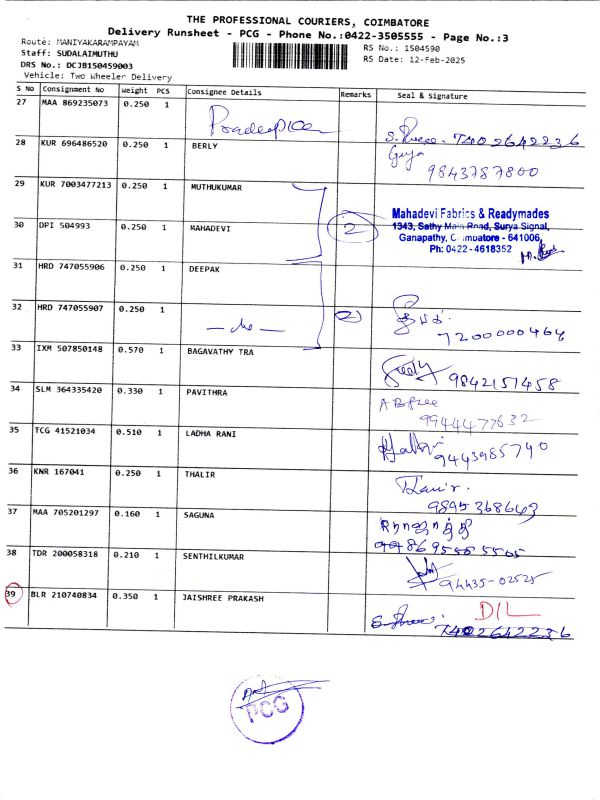 THE PROFESSIONAL COURIERS, COIMBATORE
Delivery Runsheet - PCG - Phone No.:0422-3505555 - Page No.:3
Route: MANIYAKARAMPAYAM RS No.: 1504590
Staff: SUDALAIMUTHU RS Date: 12-Feb-2025
DRS No.: DCJB150459003
Vehicle: Two Wheeler Delivery
S No Consignment No Weight PCS Consignee Details Remarks Seal & Signature
27 MAA 869235073 0.250 1 7402642236
28 KUR 696486520 0.250 1 BERLY
9843787800
29 KUR 7003477213 0.250 1 MUTHUKUMAR
Mahadevi Fabrics & Readymades
1343, Sathy Main Road, Surya Signal,
30 DPI 504993 0.250 1 MAHADEVI 2 Ganapathy, Coimbatore - 641006
Ph: 0422 - 4618352
31 HRD 747055906 0.250 1 DEEPAK
32 HRD 747055907 0.250 1 — do — 2
7200000464
33 IXM 507850148 0.570 1 BAGAVATHY TRA 9842151458
34 SLM 364335420 0.330 1 PAVITHRA
9944477632
35 TCG 41521034 0.510 1 LADHA RANI
9443985740
36 KNR 167041 0.250 1 THALIR
9895368643
37 MAA 705201297 0.160 1 SAGUNA
38 TDR 200058318 0.210 1 SENTHILKUMAR 94435-02525
39 BLR 210740834 0.350 1 JAISHREE PRAKASH D/L
7402642236
PCG